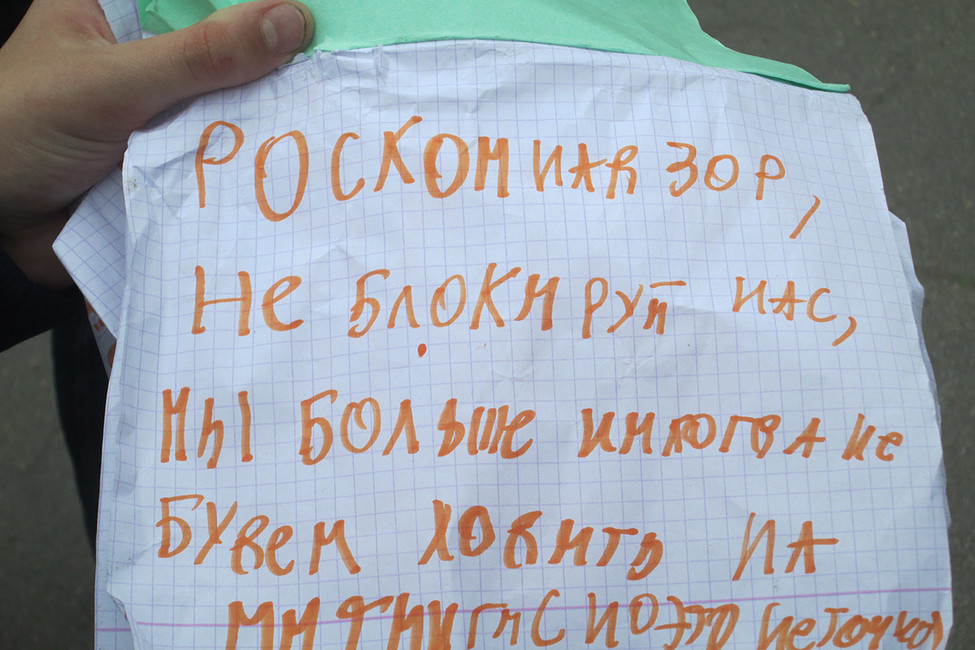 РОСКОМНАДЗОР,
НЕ БЛОКИРУЙ НАС,
МЫ БОЛЬШЕ НИКОГДА НЕ
БУДЕМ ХОДИТЬ НА
МИТИНГИ С